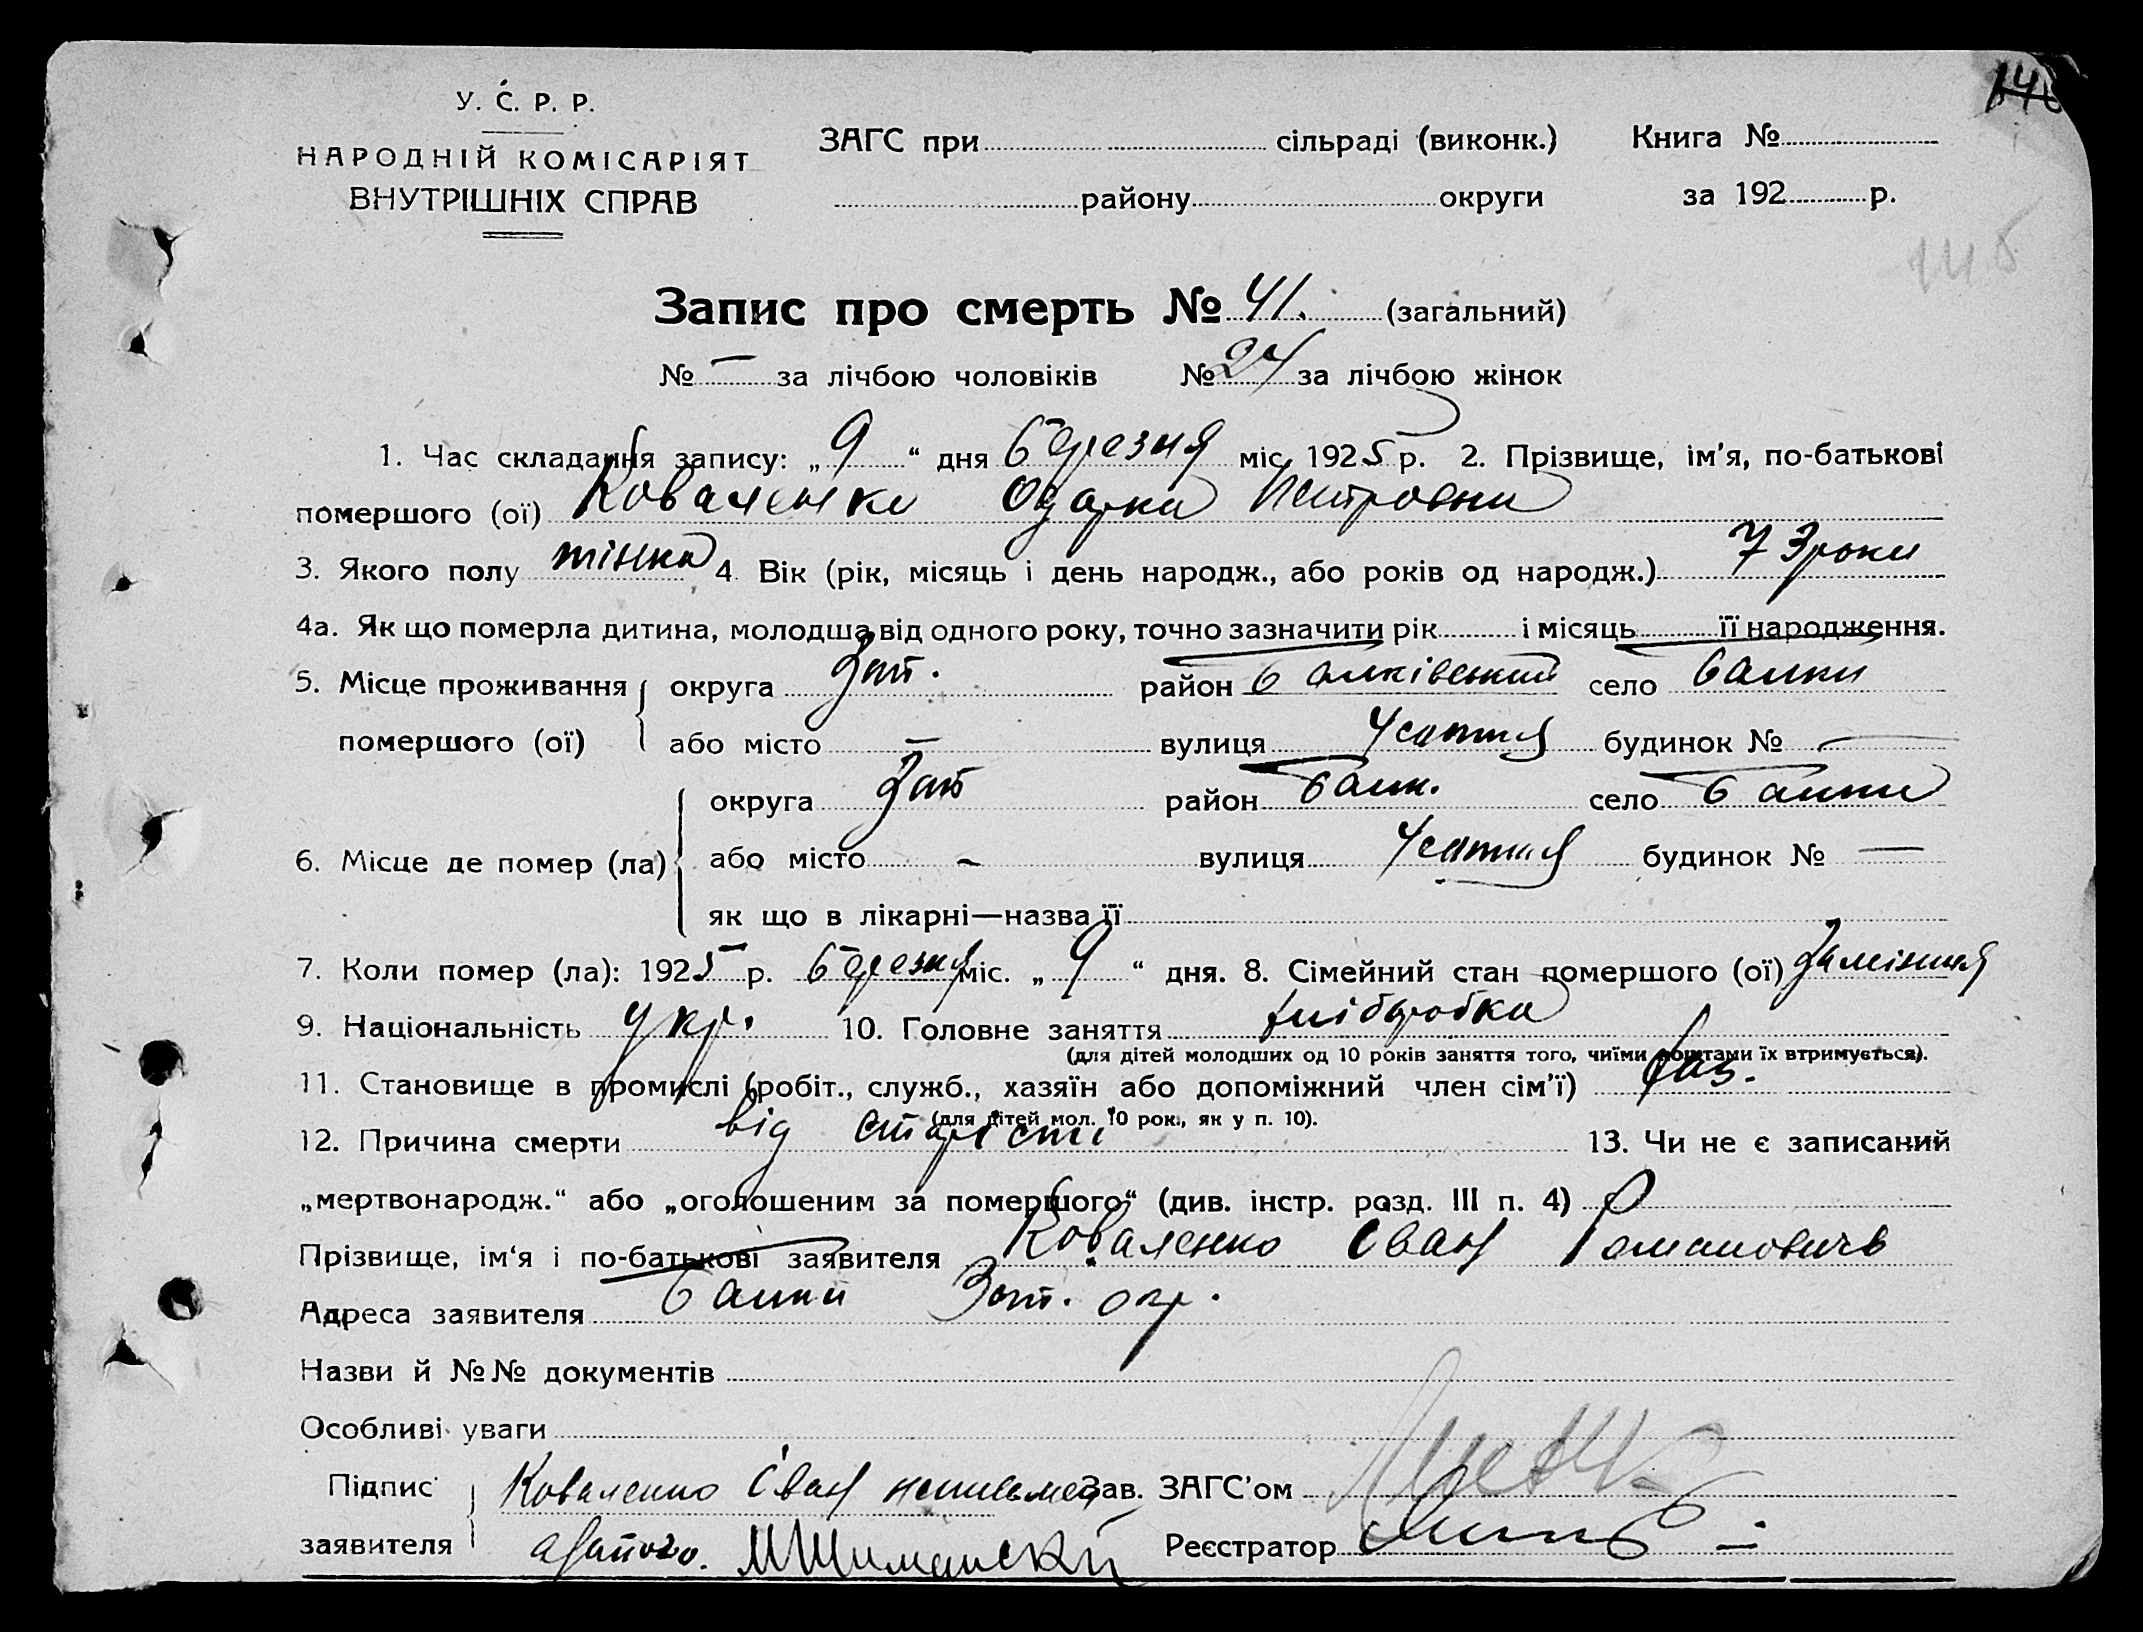 У. С. Р. Р.
НАРОДНІЙ КОМІСАРІЯТ
ВНУТРІШНІХ СПРАВ
ЗАГС при сільраді (виконк.) Книга №
району округи за 192 р.
145
Запис про смерть № 41. (загальний)
№ — за лічбою чоловіків № 24 за лічбою жінок
1. Час складання запису: „ 9 “ дня березня міс. 1925 р. 2. Прізвище, ім'я, по-батькові
помершого (ої) Коваленко Одарка Петровна
3. Якого полу жінка 4. Вік (рік, місяць і день народж., або років од народж.) 73 роки
4а. Як що померла дитина, молодша від одного року, точно зазначити рік і місяць її народження.
5. Місце проживання округа Зап. район Балківський село Балки
помершого (ої) або місто — вулиця будинок № —
округа Зап район Балк. село Балки
6. Місце де помер (ла) або місто — вулиця будинок № —
як що в лікарні—назва її
7. Коли помер (ла): 1925 р. березня міс. „ 9 “ дня. 8. Сімейний стан помершого (ої) Заміжня
9. Національність укр. 10. Головне заняття хліборобка
(для дітей молодших од 10 років заняття того, чиїми коштами їх втримується).
11. Становище в промислі (робіт., служб., хазяїн або допоміжний член сім'ї) хаз.
(для дітей мол. 10 рок., як у п. 10).
12. Причина смерти від старісти 13. Чи не є записаний
„мертвонародж.“ або „оголошеним за помершого“ (див. інстр. розд. III п. 4)
Прізвище, ім'я і по-батькові заявителя Коваленко Іван Романовичь
Адреса заявителя Балки Зап. окр.
Назви й №№ документів
Особливі уваги
Підпис Коваленко Іван Зав. ЗАГС'ом
заявителя Реєстратор